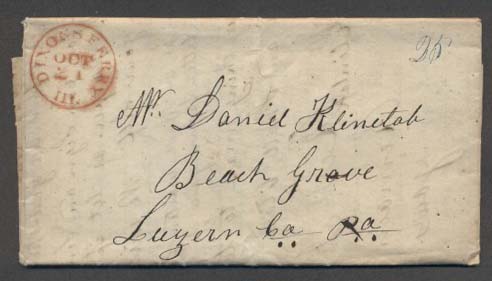 DIXON'S FERRY
OCT
21
Ill.
25
Mr. Daniel Klinetob
Beach Grove
Luzern Co Pa